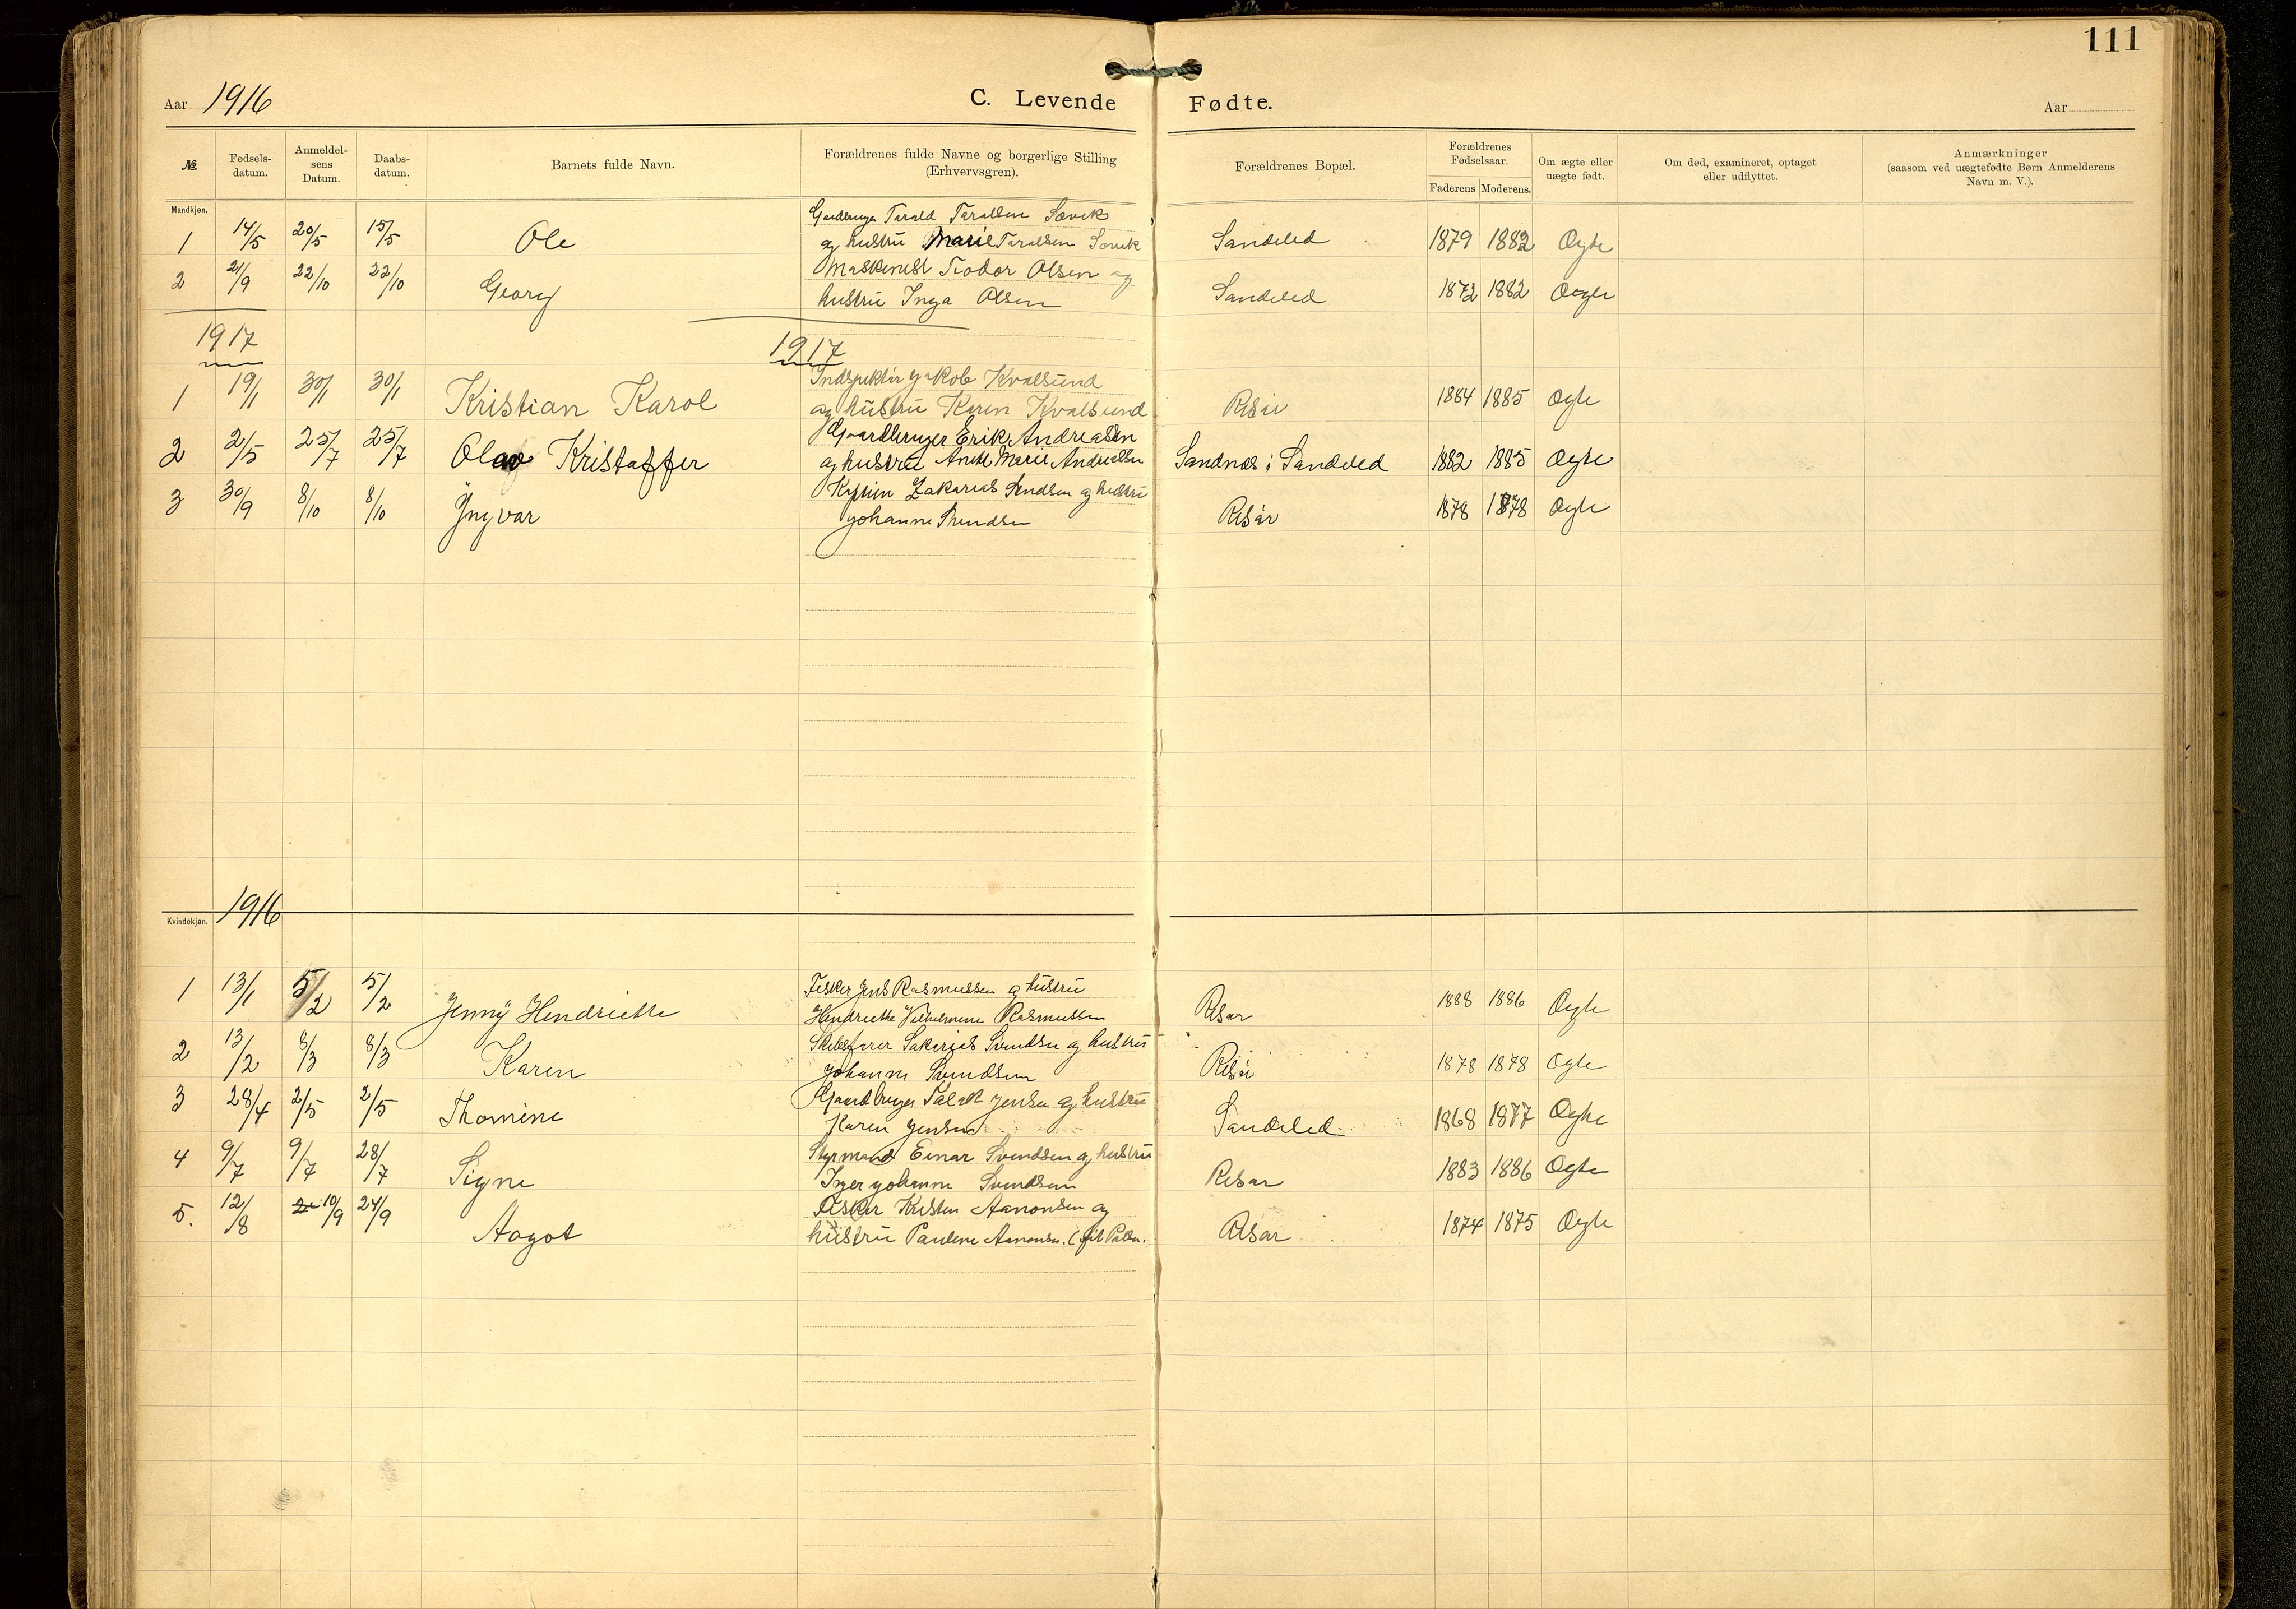 111
Aar 1916 C. Levende Fødte. Aar
№ Fødsels-datum. Anmeldel-sens Datum. Daabs-datum. Barnets fulde Navn. Forældrenes fulde Navne og borgerlige Stilling (Erhvervsgren). Forældrenes Bopæl. Forældrenes Fødselsaar. Faderens Moderens. Om ægte eller uægte født. Om død, examineret, optaget eller udflyttet. Anmærkninger (saasom ved uægtefødte Børn Anmelderens Navn m. V.).
Mandkjøn.
Tarald Taralsen Sævik
1 14/5 20/5 15/5 Ole og hustru Marie Taralsen Sævik Sandeled 1879 1882 Ægte
2 21/9 22/10 22/10 Georg Maskinist Teodor Olsen og
hustru Inga Olsen Sandeled 1872 1882 Ægte
1917 1917
Indspektør Jakob Kvalsund
1 19/1 30/1 30/1 Kristian Karol og hustru Karen Kvalsund Risør 1884 1885 Ægte
Gaardbruger Erik Andreasen
2 2/5 25/7 25/7 Olav Kristoffer og hustru Marie Andreasen Sandnæs i Sandeled 1882 1885 Ægte
3 30/9 8/10 8/10 Yngvar Zakarias Svendsen og hustru
Johanne Svendsen Risør 1878 1878 Ægte
Kvindekjøn. 1916
1 13/1 5/2 5/2 Jenny Hendriette Fisker Jens Rasmussen og hustru
Hendriette Vilhelmine Rasmussen Risør 1888 1886 Ægte
2 13/2 8/3 8/3 Karen Skibsfører Sakarias Svendsen og hustru
Johanne Svendsen Risør 1878 1878 Ægte
3 28/4 2/5 2/5 Thomine Gaardbruger Jensen og hustru
Karen Jensen Sandeled 1868 1877 Ægte
4 9/7 9/7 28/7 Signe Styrmand Einar Svendsen og hustru
Inger Johanne Svendsen Risør 1883 1886 Ægte
5. 12/8 10/9 24/9 Aagot Fisker Kristen Aanonsen og
hustru Pauline Aanonsen Risør 1874 1875 Ægte